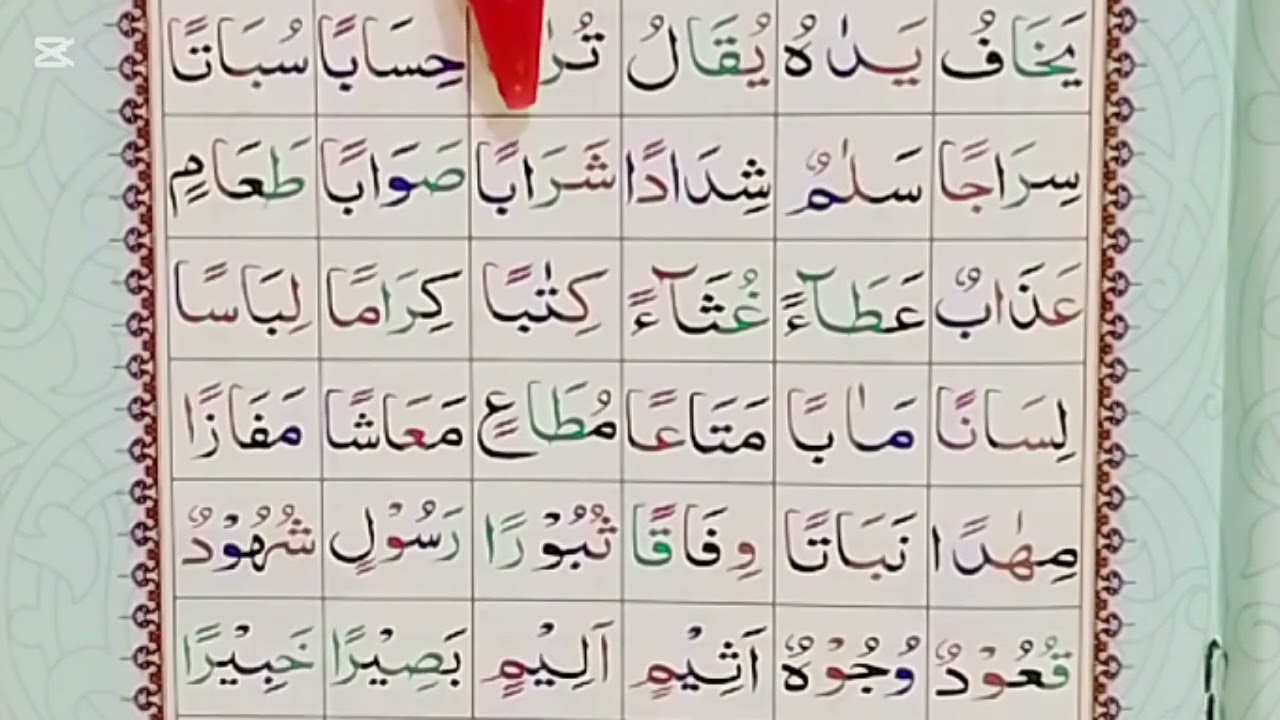 يَخَافُ يَدٰىهُ يُقَالُ حِسَابًا سُبَاتًا
سِرَاجًا سَلٰمٌ شِدَادًا شَرَابًا صَوَابًا طَعَامٍ
عَذَابٌ عَطَآءً غُثَآءً كِتٰبًا كِرَامًا لِبَاسًا
لِسَانًا مَاٰبًا مَتَاعًا مُطَاعٍ مَعَاشًا مَفَازًا
مِهٰدًا نَبَاتًا وِفَاقًا ثُبُوْرًا رَسُوْلٍ شُهُوْدٌ
قُعُوْدٌ وُجُوْهٌ اَثِيْمٍ اَلِيْمٍ بَصِيْرًا خَبِيْرًا